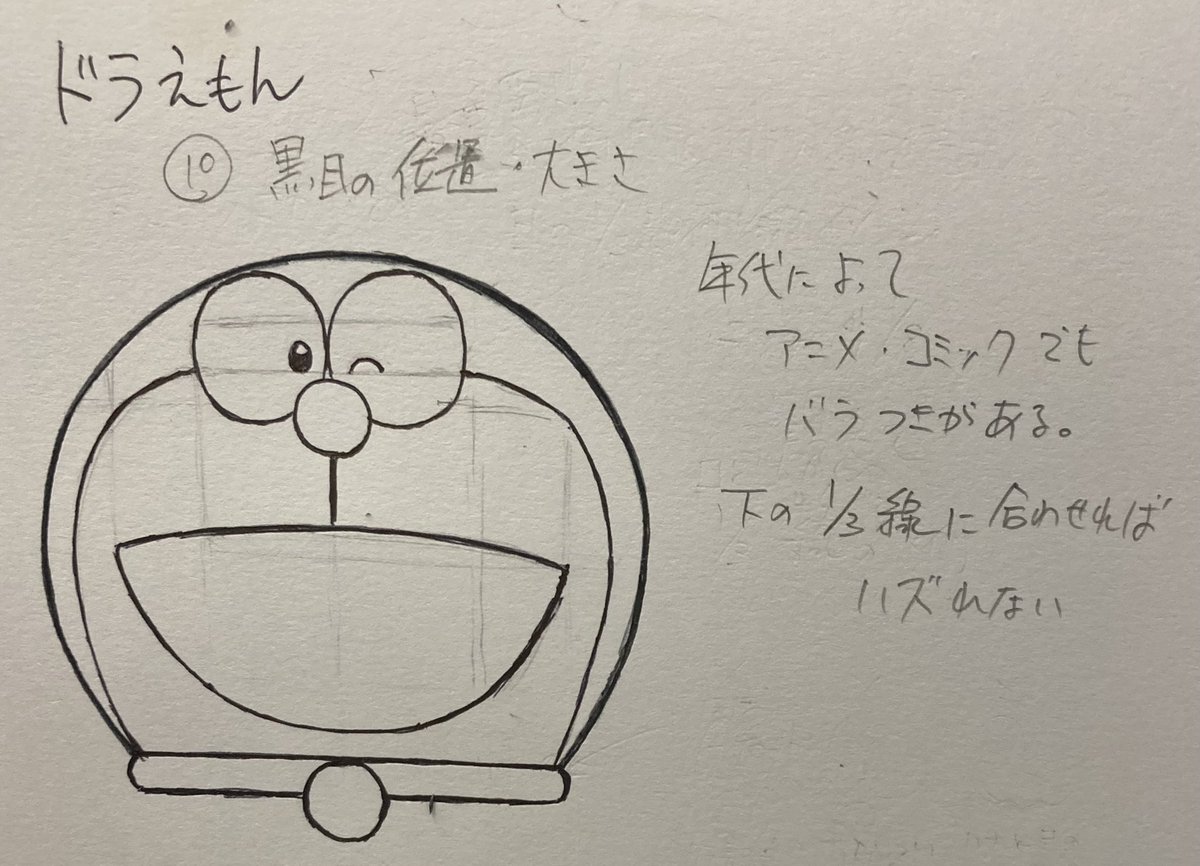 ドラえもん
⑩ 黒目の位置・大きさ
年代によって
アニメ・コミックでも
バラつきがある。
下の 1/3 線に合わせれば
ハズれない